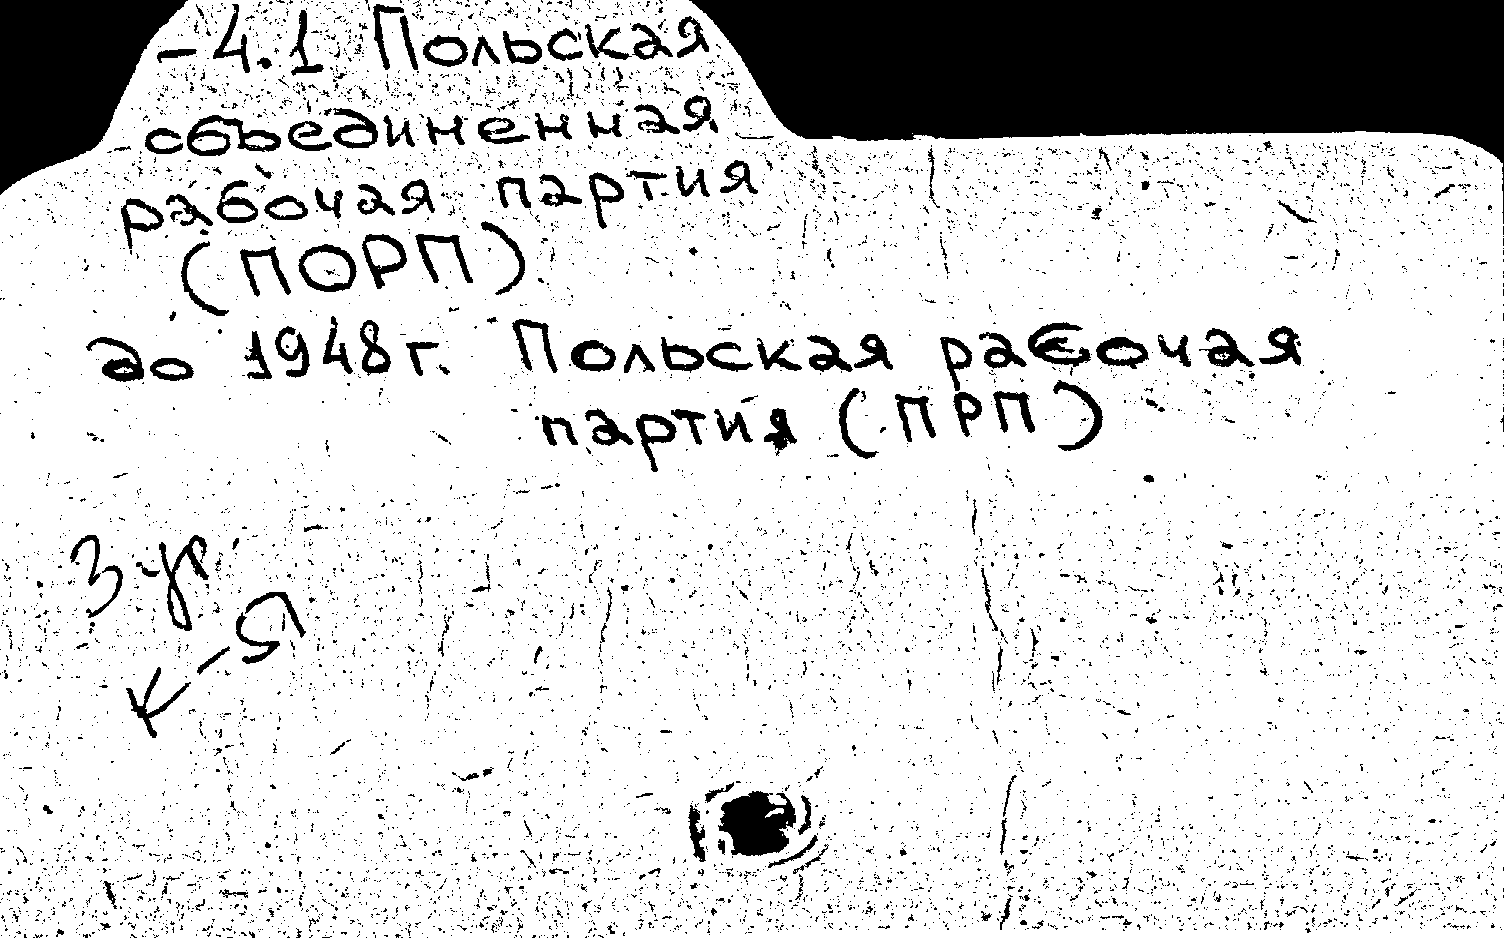 -4.1 Польская
объединенная
рабочая партия
(ПОРП)
до 1948г. Польская рабочая
партия (ПРП)
3 ур